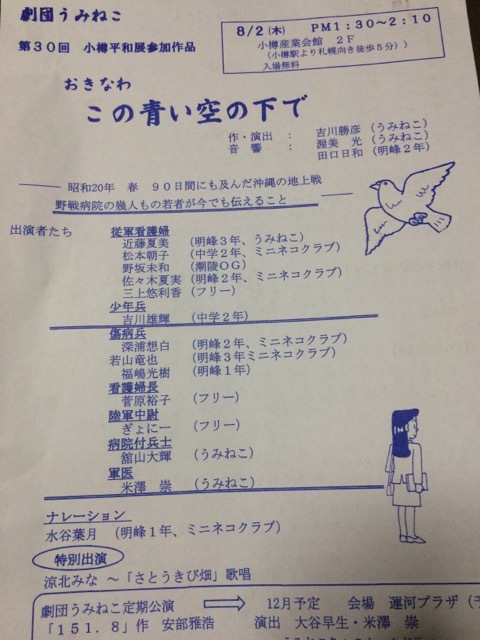 劇団うみねこ
第30回 小樽平和展参加作品
8/2(木) PM1:30〜2:10
小樽産業会館 2F
(小樽駅より札幌向き徒歩5分)
入場無料
おきなわ
この青い空の下で
作・演出 : 吉川勝彦(うみねこ)
音響 : 渥美 光(うみねこ)
田口日和(明峰2年)
昭和20年 春 90日間にも及んだ沖縄の地上戦
野戦病院の幾人もの若者が今でも伝えること
出演者たち
従軍看護婦
近藤夏美(明峰3年、うみねこ)
松本朝子(中学2年、ミニネコクラブ)
野坂未和(潮陵OG)
佐々木夏実(明峰2年、ミニネコクラブ)
三上悠利香(フリー)
少年兵
吉川雄輝(中学2年)
傷病兵
深浦想白(明峰2年、ミニネコクラブ)
若山竜也(明峰3年ミニネコクラブ)
福嶋光樹(明峰1年)
看護婦長
菅原裕子(フリー)
陸軍中尉
ぎょにー(フリー)
病院付兵士
舘山大輝(うみねこ)
軍医
米澤 崇(うみねこ)
ナレーション
水谷葉月(明峰1年、ミニネコクラブ)
特別出演
涼北みな 〜「さとうきび畑」歌唱
劇団うみねこ定期公演 ⇒ 12月予定 会場 運河プラザ
「151.8」作 安部雅浩 演出 大谷早生・米澤 崇